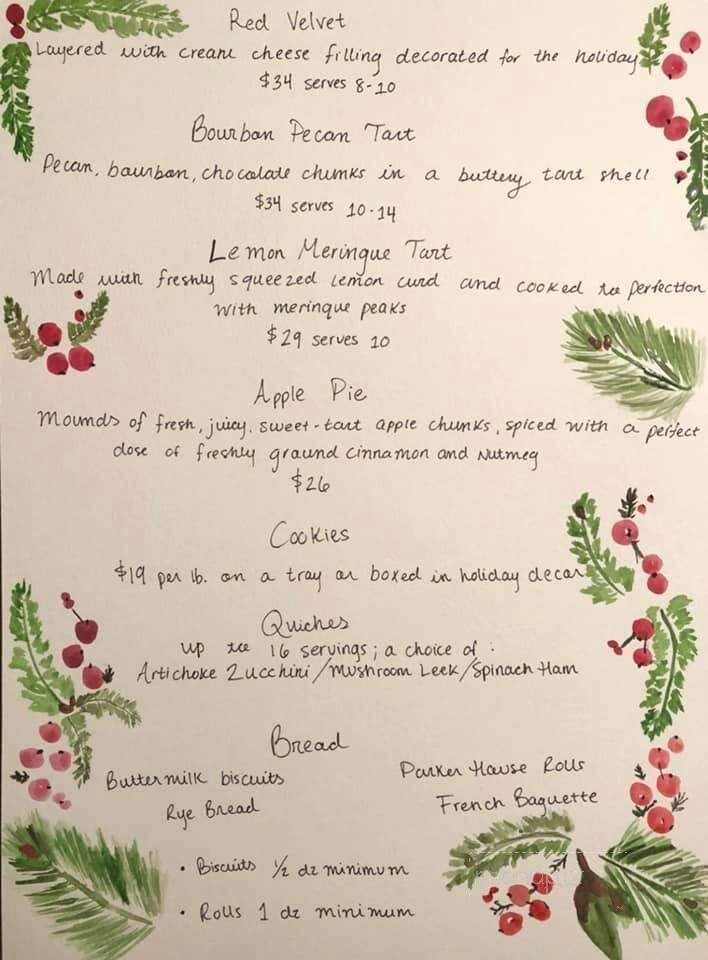 Red Velvet
Layered with cream cheese filling decorated for the holiday
$34 serves 8-10
Bourbon Pecan Tart
Pecan, bourban, chocolate chunks in a buttery tart shell
$34 serves 10-14
Lemon Meringue Tart
Made with freshly squeezed lemon curd and cooked to perfection
with meringue peaks
$29 serves 10
Apple Pie
Mounds of fresh, juicy, sweet-tart apple chunks, spiced with a perfect
dose of freshly ground cinnamon and nutmeg
$26
Cookies
$19 per lb. on a tray or boxed in holiday decor
Quiches
up to 16 servings; a choice of :
Artichoke Zucchini/Mushroom Leek/Spinach Ham
Bread
Buttermilk biscuits
Parker House Rolls
Rye Bread
French Baguette
• Biscuits 1/2 dz minimum
• Rolls 1 dz minimum